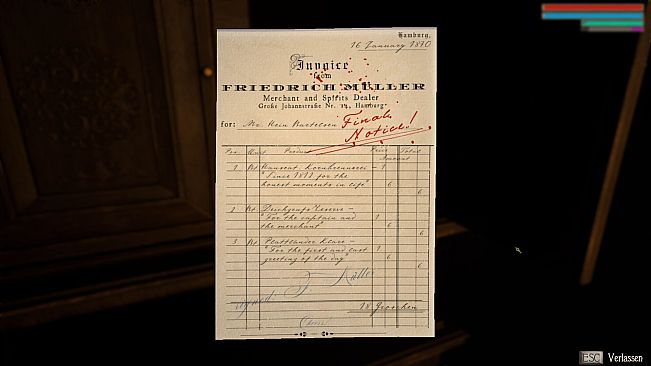 Hamburg,
16 January 1870
Invoice
from
FRIEDRICH MÜLLER
Merchant and Spirits Dealer
Große Johannstraße Nr. 14, Hamburg
for: Mr. Hein
Final
Notice!
Product Price Total
Amount
1 Hanseat Kornbrennerei – 1
"Since 18 for the
honest moments in life" 6
6
2 Deichgrafs Reserve –
"For the captain and 1
the merchant" 6
6
3 Plattlander Klare –
"For the first and last 1
greeting of the day" 6
6
signed: F. Müller
18 Groschen
ESC Verlassen